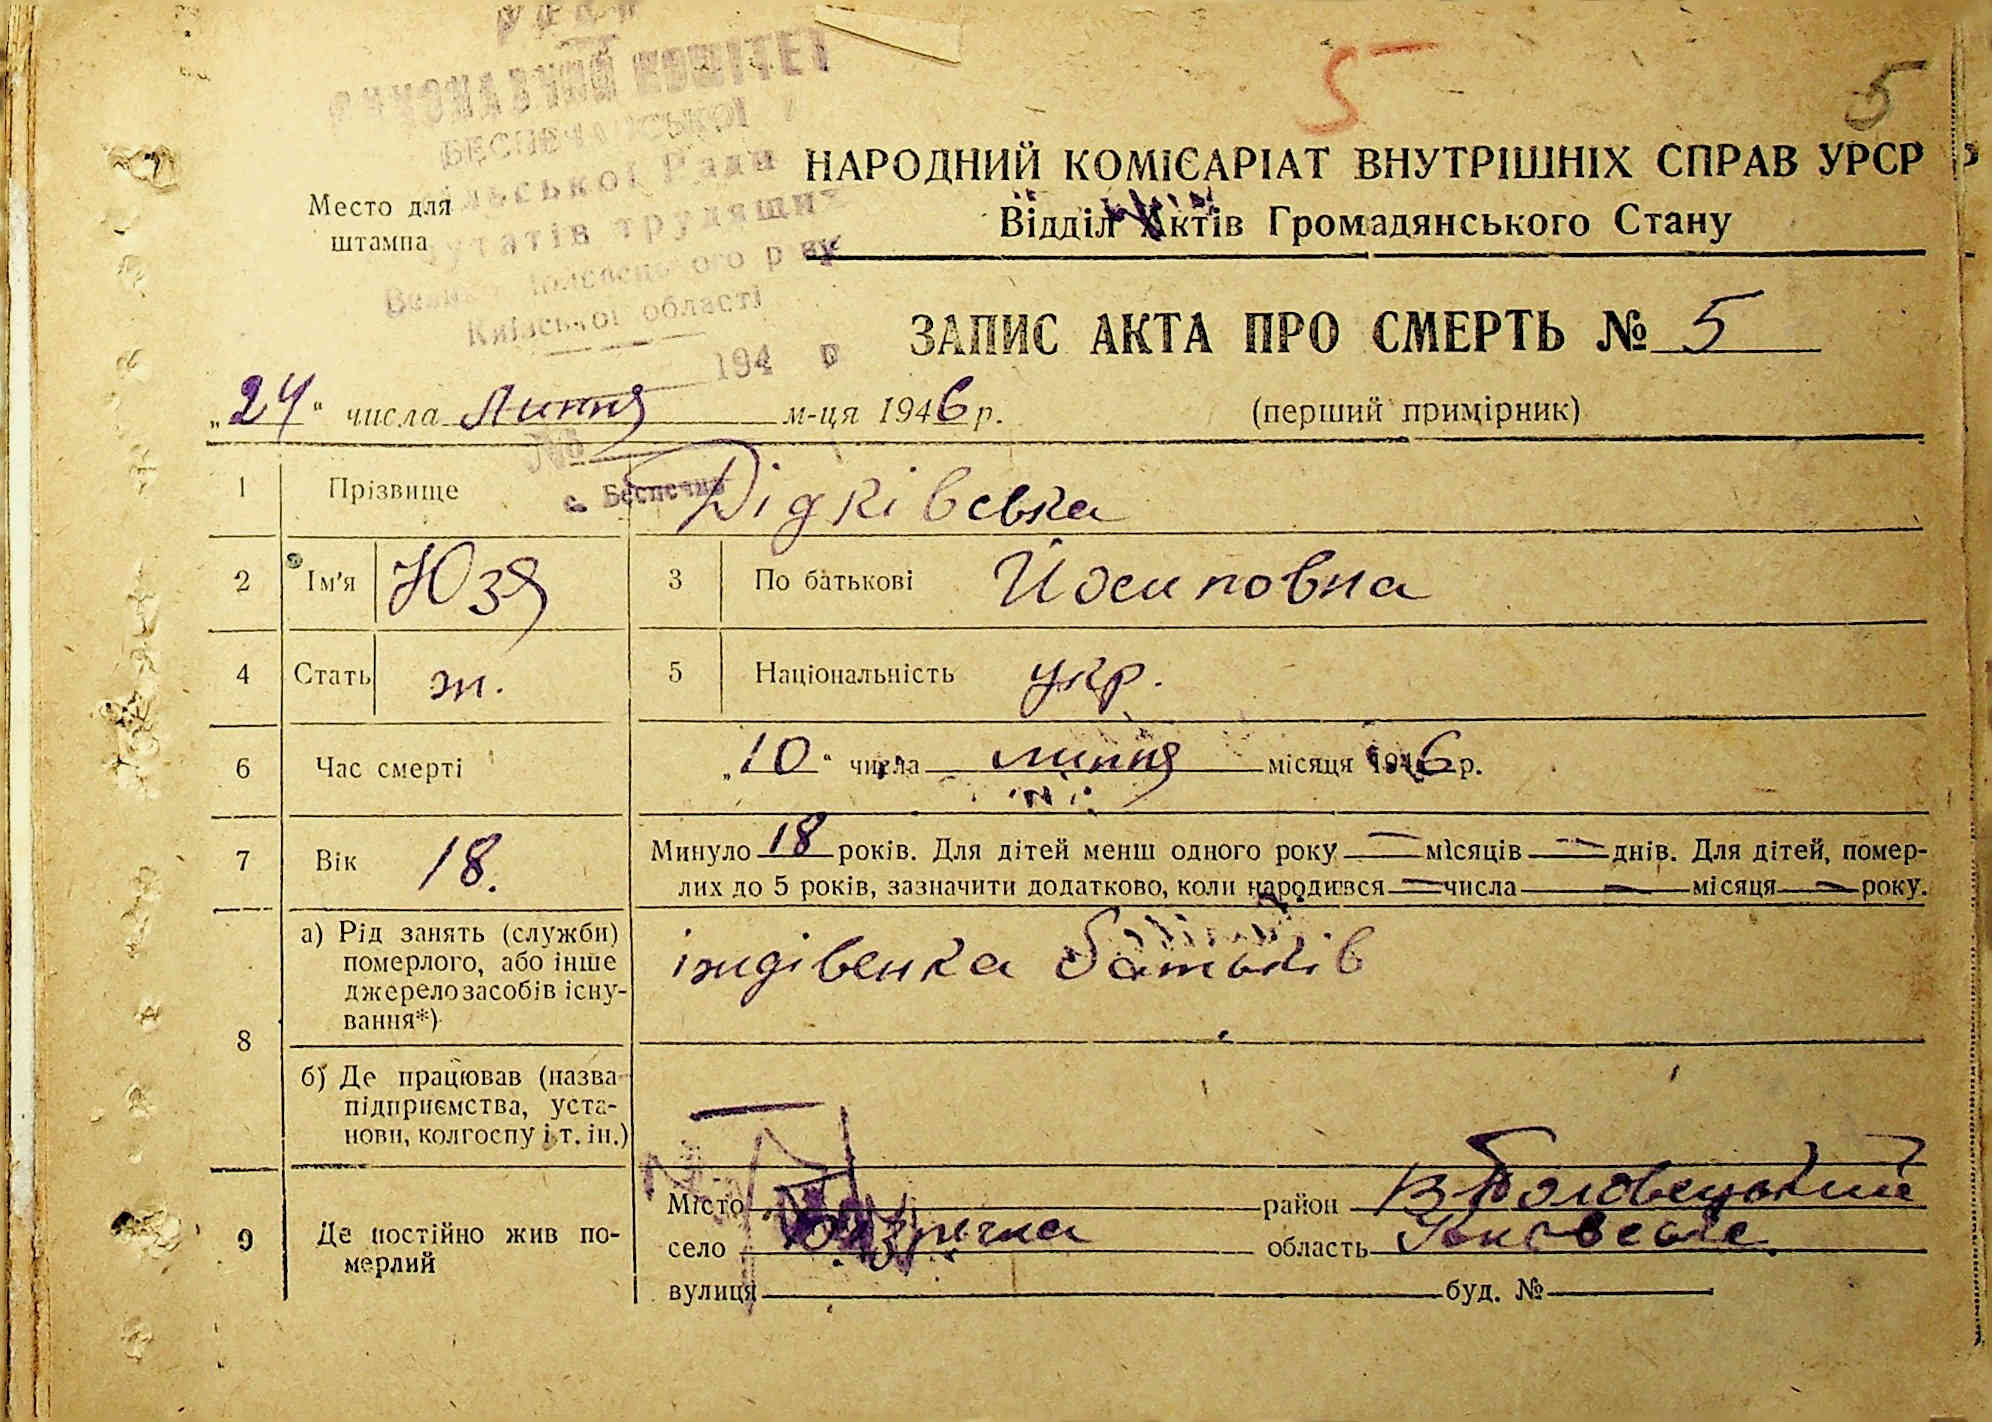 ВИКОНАВЧИЙ КОМІТЕТ
сільської Ради
депутатів трудящих
Київської області
194 р
№
с. Беспечна
5
5
НАРОДНИЙ КОМІСАРІАТ ВНУТРІШНІХ СПРАВ УРСР
Место для
штампа
Відділ Актів Громадянського Стану
ЗАПИС АКТА ПРО СМЕРТЬ № 5
„24“ числа Липня м-ця 1946 р.
(перший примірник)
1 Прізвище Дідківська
2 Ім'я Юзя 3 По батькові Йосиповна
4 Стать ж. 5 Національність укр.
6 Час смерті „10“ числа липня місяця 1946 р.
7 Вік 18. Минуло 18 років. Для дітей менш одного року — місяців — днів. Для дітей, помер-
лих до 5 років, зазначити додатково, коли народився — числа — місяця — року.
8 а) Рід занять (служби)
померлого, або інше
джерело засобів існу-
вання*)
іждівенка батьків
б) Де працював (назва
підприємства, уста-
нови, колгоспу і т. ін.)
9 Де постійно жив по-
мерлий
Місто район В Половецький
село область Київське
вулиця буд. №